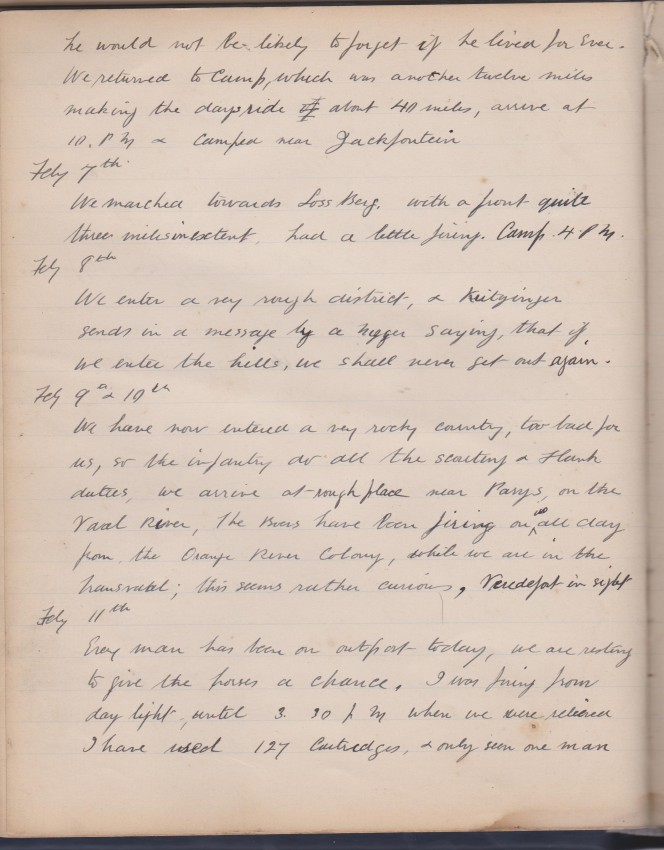 he would not be likely to forget if he lived for Ever.
We returned to Camp, which was another twelve miles
making the days ride of about 40 miles, arrive at
10. P M & Camped near Jackfontein
Feby 7th
We marched towards Loss Berg. with a front quite
three miles in extent. had a little firing. Camp. 4. P M.
Feby 8th
We enter a very rough district, & Kritzinger
sends in a message by a nigger saying, that if
we enter the hills, we shall never get out again.
Feby 9th & 10th
We have now entered a very rocky country, too bad for
us, so the infantry do all the scouting & Flank
duties, we arrive at rough place near Parys, on the
Vaal River, The Boers have been firing on us all day
from the Orange River Colony, while we are in the
Transvaal; this seems rather curious, Vredefort in sight
Feby 11th
Every man has been on outpost today, we are resting
to give the horses a chance. I was firing from
day light, until 3. 30 P M when we were relieved
I have used 127 Cartridges, & only seen one man